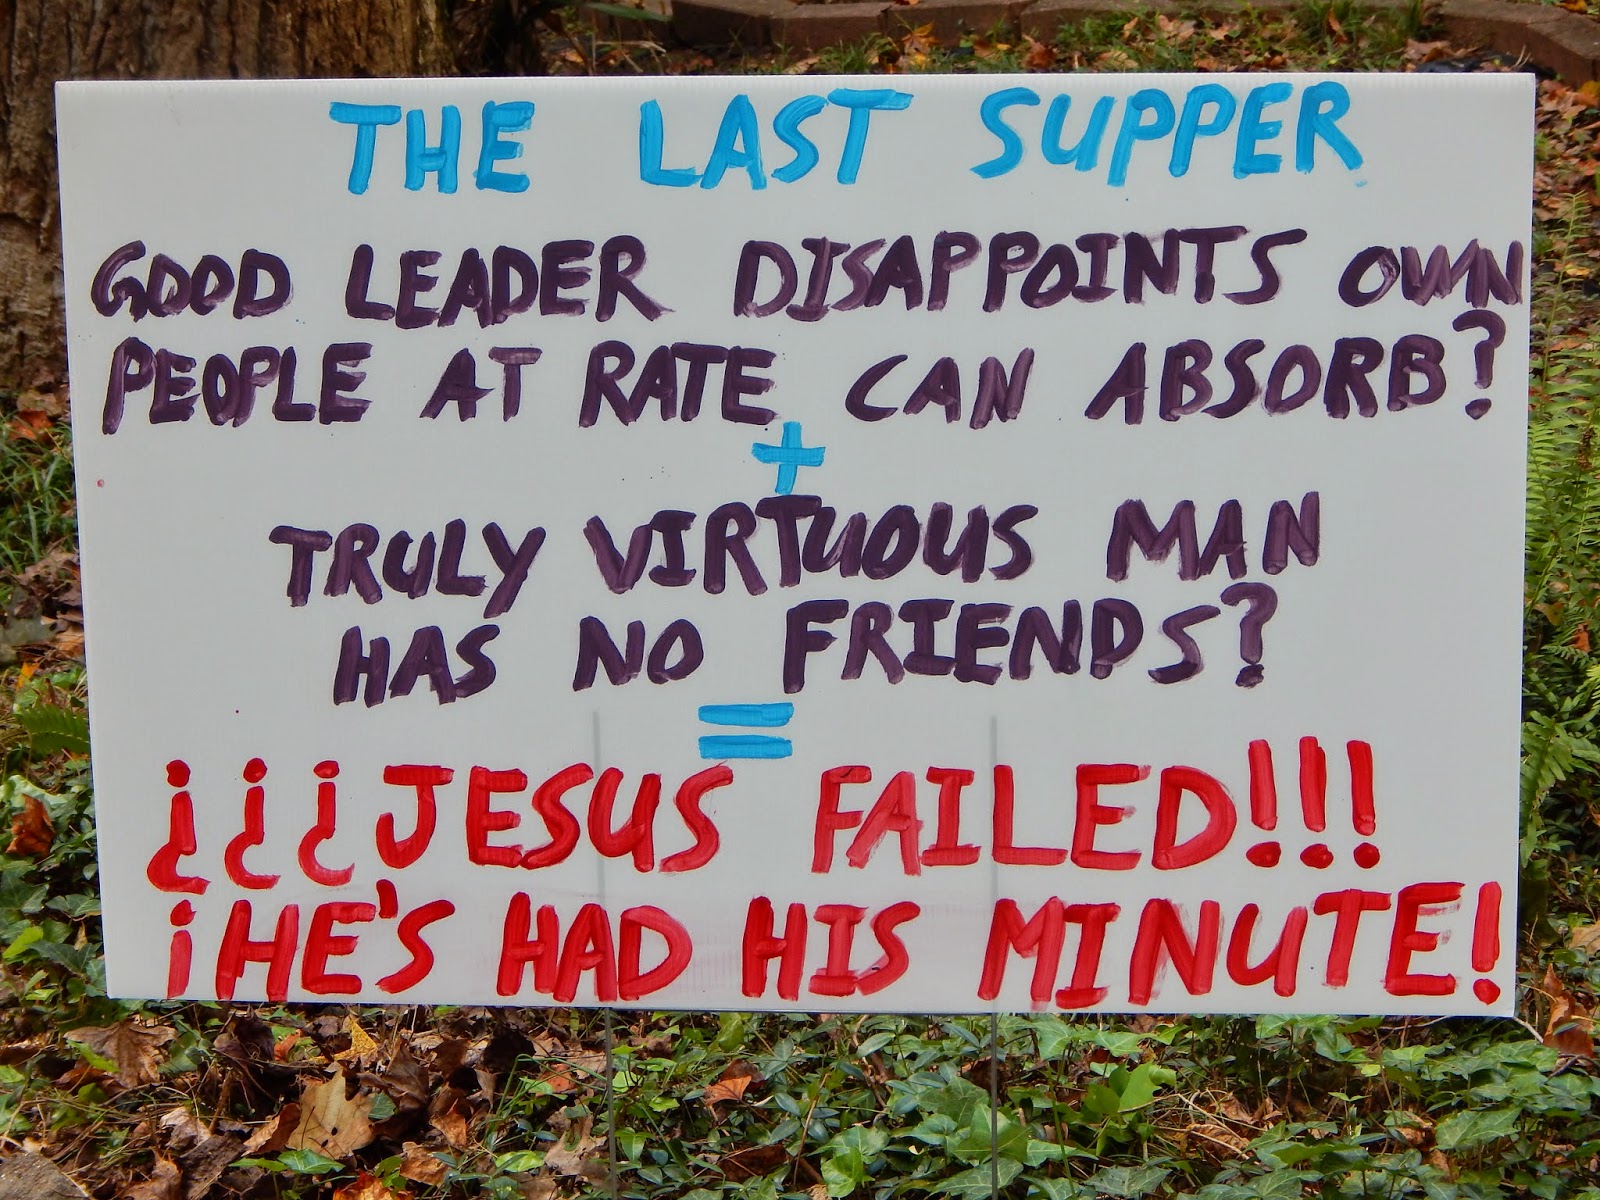 THE LAST SUPPER
GOOD LEADER DISAPPOINTS OWN
PEOPLE AT RATE CAN ABSORB?
+
TRULY VIRTUOUS MAN
HAS NO FRIENDS?
=
¿¿¿JESUS FAILED!!!
¡HE'S HAD HIS MINUTE!